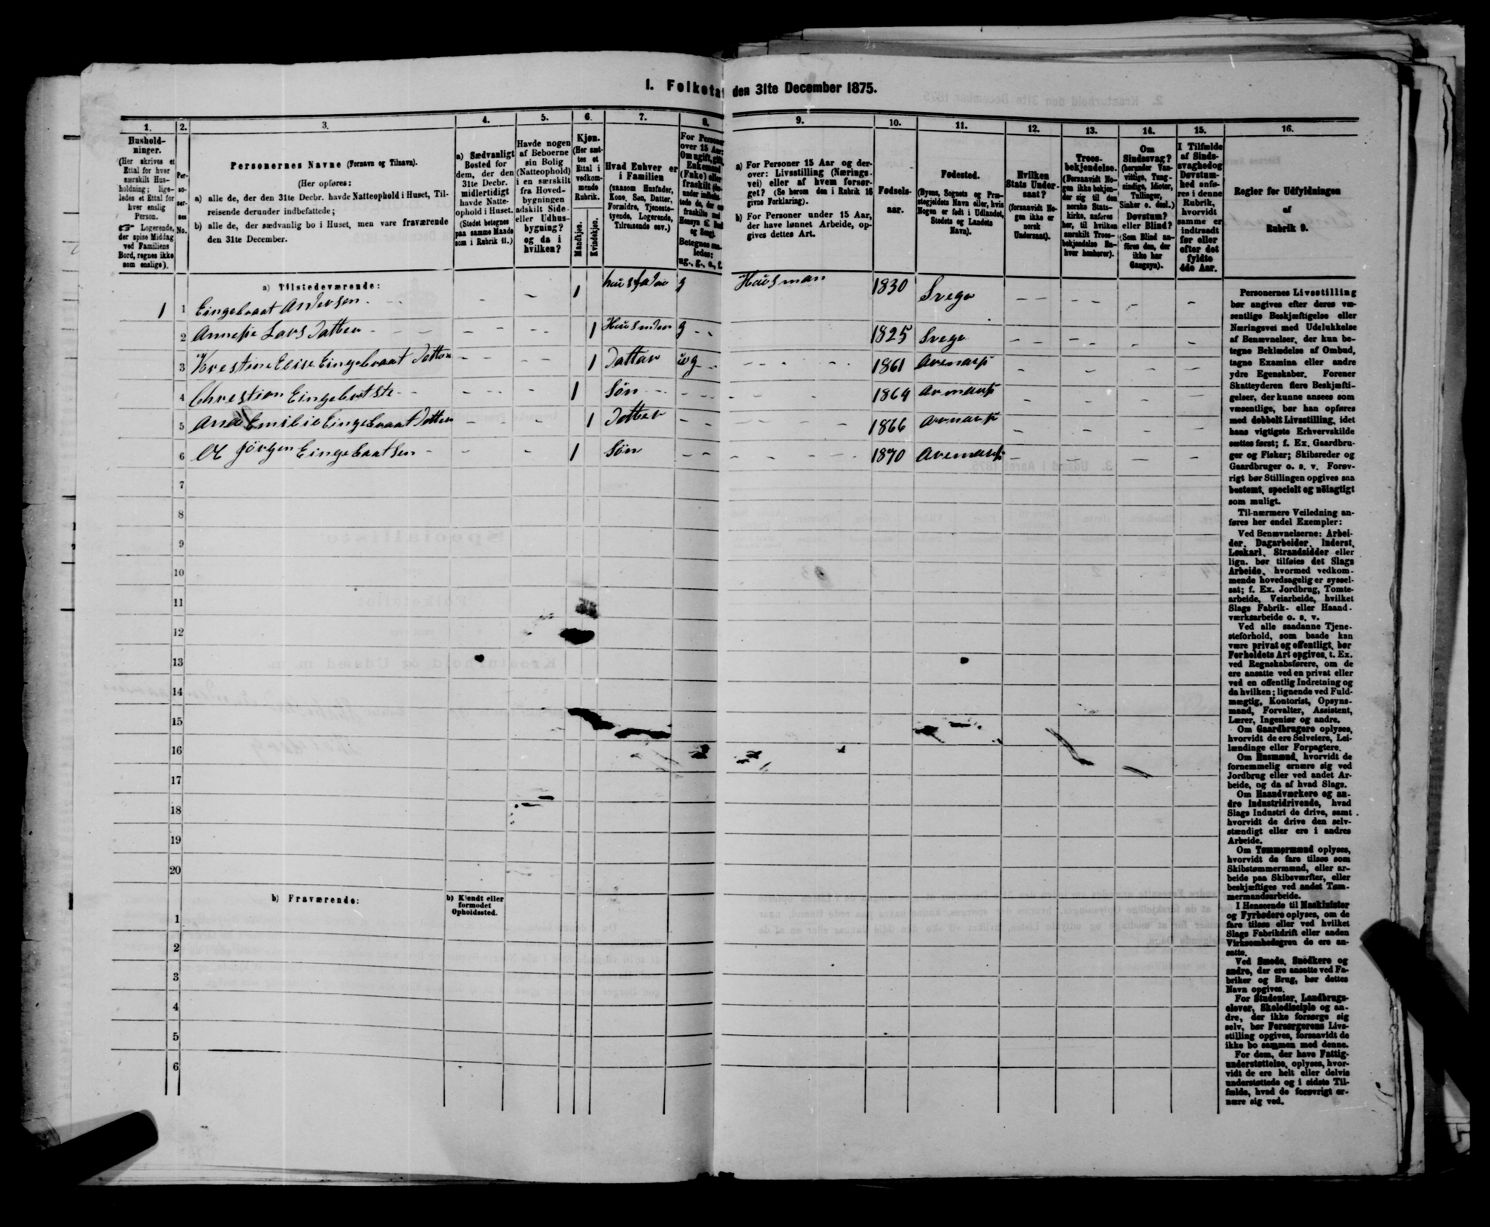 I. Folketa den 31te December 1875.
1. 2. 3. 4. 5. 6. 7. 8. 9. 10. 11. 12. 13. 14. 15. 16.
Hushold-
ninger.
(Her skrives et
Ettal for hver
særskilt Hus-
holdning; lige-
ledes et Ettal for
hver enslig
Person.
Logerende,
der spise Middag
ved Familiens
Bord, regnes ikke
som enslige).
Per-
so-
ner-
nes
No.
Personernes Navne (Fornavn og Tilnavn).
(Her opføres:
a) alle de, der den 31te Decbr. havde Natteophold i Huset, Til-
reisende derunder indbefattede;
b) alle de, der sædvanlig bo i Huset, men vare fraværende
den 31te December.
a) Sædvanligt
Bosted for
dem, der den
31te Decbr.
midlertidigt
havde Natte-
ophold i Huset.
(Stedet betegnes
paa samme Maade
som i Rubrik 11.)
Havde nogen
af Beboerne
sin Bolig
(Natteophold)
i en særskilt
fra Hoved-
bygningen
adskilt Side-
eller Udhus-
bygning?
og da i
hvilken?
Kjøn.
(Her sæt-
tes et
Ettal i
vedkom-
mende
Rubrik.
Mandkjøn.
Kvindekjøn.
Hvad Enhver er
i Familien
(saasom Husfader,
Kone, Søn, Datter,
Forældre, Tjeneste-
tyende, Logerende,
Tilreisende osv.)
For Persone
over 15 Aar:
Om ugift, gift,
Enkemand
(Enke) eller
fraskilt
Betegnes saa-
ledes:
ug., g., e., f.
a) For Personer 15 Aar og der-
over: Livsstilling (Nærings-
vei) eller af hvem forsør-
get? (Se herom den i Rubrik 16
givne Forklaring).
b) For Personer under 15 Aar,
der have lønnet Arbeide, op-
gives dettes Art.
Fødsels-
aar.
Fødested.
(Byens, Sognets og Præ-
stegjeldets Navn eller, hvis
Nogen er født i Udlandet,
Stedets og Landets
Navn).
Hvilken
Stats Under-
saat?
(forsaavidt No-
gen ikke er
norsk
Undersaat).
Troes-
bekjendelse.
(Forsaavidt No-
gen ikke bekjen-
der sig til den
norske Stats-
kirke, anføres
her, til hvilken
særskilt Troes-
bekjendelse En-
hver henhører).
Om
Sindssvag?
(herunder Van-
vittige, Tung-
sindige, Idioter,
Tullinger,
Sinker o. desl.)
Døvstum?
eller Blind?
(Som Blind an-
føres den, der
ikke har
Gangsyn).
I Tilfælde
af Sinds-
svaghed og
Døvstum-
hed anfø-
res i denne
Rubrik,
hvorvidt
samme er
indtraadt
før eller
efter det
fyldte
4de Aar.
Regler for Udfyldningen
af
Rubrik 9.
a) Tilstedeværende:
1 1 Eingebraat Andersen - - 1 husfader g Huusman 1830 Svego - - - -
2 Annepie Lars Datter - - - 1 g - - 1825 Svego - - - -
3 Krestine Elise Eingebraat Datter - - - 1 Datter ug - - 1861 - - - -
4 Chrestian - - - 1 Søn - - 1864 - - - -
5 Ana Emilie Eingebraat Datter - - 1 Datter - - 1866 - - - -
6 Ole Jörgen Eingebraatsen - - - 1 Søn - - 1870 - - - -
7
8
9
10
11
12
13
14
15
16
17
18
19
20
b) Fraværende:
b) Kjendt eller
formodet
Opholdssted.
1
2
3
4
5
6
Personernes Livsstilling
bør angives efter deres væ-
sentlige Beskjæftigelse eller
Næringsvei med Udelukkelse
af Benævnelser, der kun be-
tegne Beklædelse af Ombud,
tagne Examina eller andre
ydre Egenskaber. Forener
Skatteyderen flere Beskjæfti-
gelser, der kunne ansees som
væsentlige, bør han opføres
med dobbelt Livsstilling, idet
hans vigtigste Erhvervskilde
sættes først; f. Ex. Gaardbru-
ger og Fisker; Skibsreder og
Gaardbruger o. s. v. Forøv-
rigt bør Stillingen opgives saa
bestemt, specielt og nøiagtigt
som muligt.
Til nærmere Veiledning an-
føres her endel Exempler:
Ved Benævnelserne: Arbei-
der, Dagarbeider, Inderst,
Løskarl, Strandsidder eller
lign. bør tilføies det Slags
Arbeide, hvormed vedkom-
mende hovedsagelig er syssel-
sat; f. Ex. Jordbrug, Tomte-
arbeide, Veiarbeide, hvilket
Slags Fabrik- eller Haand-
værksarbeide o. s. v.
Ved alle saadanne Tjene-
steforhold, som baade kan
være privat og offentligt, bør
Forholdets Art opgives, t. Ex.
ved Regnskabsførere, om de
ere ansatte ved en privat eller
ved en offentlig Indretning og
da hvilken; lignende ved Fuld-
mægtig, Kontorist, Opsyns-
mand, Forvalter, Assistent,
Lærer, Ingeniør og andre.
Om Gaardbrugere oplyses,
hvorvidt de ere Selveiere, Lei-
lændinge eller Forpagtere.
Om Husmænd, hvorvidt de
fornemmelig ernære sig ved
Jordbrug eller ved andet Ar-
beide, og da af hvad Slags.
Om Haandværkere og an-
dre Industridrivende, hvad
Slags Industri de drive, samt
hvorvidt de drive den selv-
stændigt eller ere i andres
Arbeide.
Om Tømmermænd oplyses,
hvorvidt de fare tilsøs som
Skibstømmermænd, eller ar-
beide paa Skibsværfter, eller
beskjæftiges ved andet Tøm-
mermandsarbeide.
I Henseende til Maskinister
og Fyrbødere oplyses, om de
fare tilsøs eller ved hvilket
Slags Fabrikdrift eller anden
Virksomhedsgren de ere an-
satte.
Ved Smede, Snedkere og
andre, der ere ansatte ved Fa-
briker og Brug, bør dettes
Navn opgives.
For Studenter, Landbrugs-
elever, Skoledisciple og an-
dre, der ikke forsørge sig
selv, bør Forsørgerens Livs-
stilling opgives, forsaavidt de
ikke bo sammen med denne.
For dem, der have Fattig-
understøttelse, oplyses, hvor-
vidt de ere helt eller delvis
understøttede og i sidste Til-
fælde, hvad de forøvrigt er-
nære sig ved.